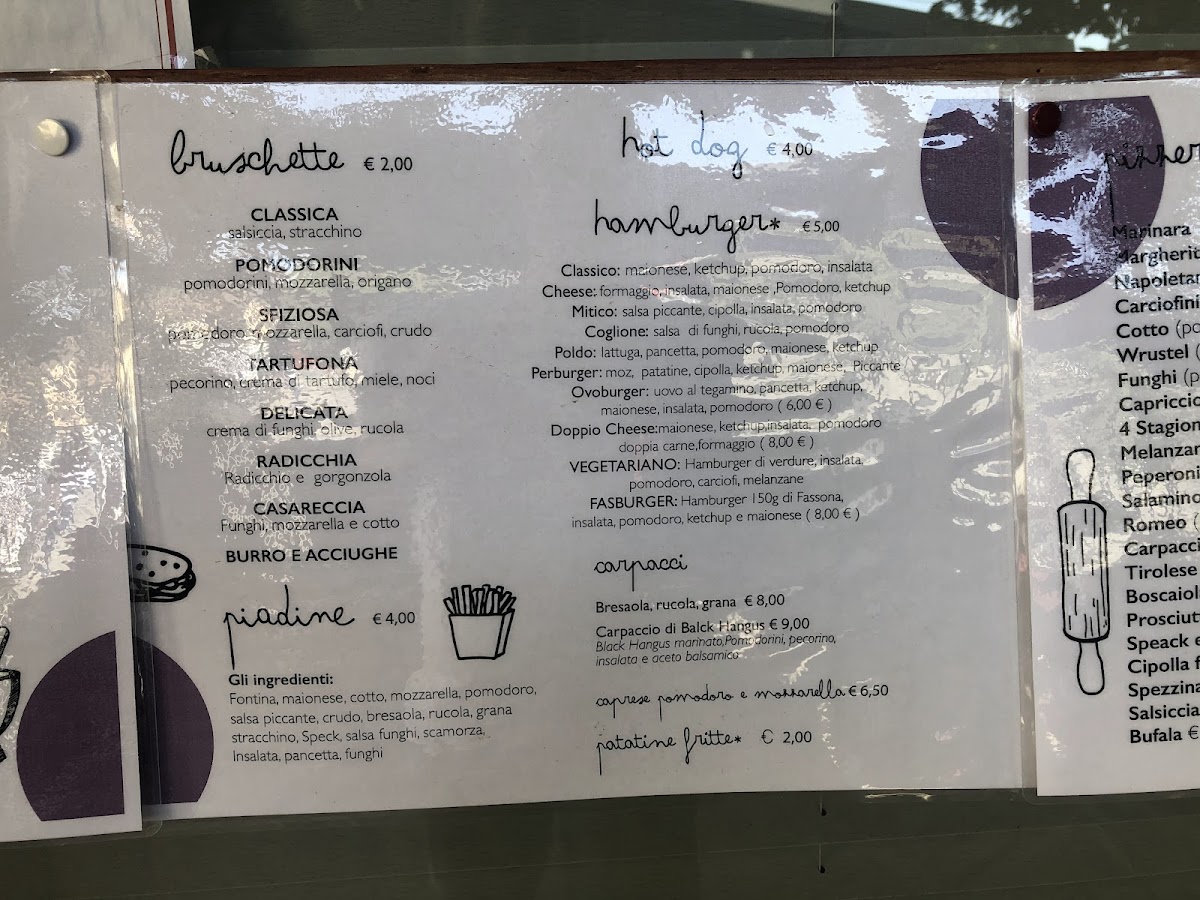 bruschette € 2,00
CLASSICA
salsiccia, stracchino
POMODORINI
pomodorini, mozzarella, origano
SFIZIOSA
pomodoro, mozzarella, carciofi, crudo
TARTUFONA
pecorino, crema di tartufo, miele, noci
DELICATA
crema di funghi, olive, rucola
RADICCHIA
Radicchio e gorgonzola
CASARECCIA
Funghi, mozzarella e cotto
BURRO E ACCIUGHE
piadine € 4,00
Gli ingredienti:
Fontina, maionese, cotto, mozzarella, pomodoro,
salsa piccante, crudo, bresaola, rucola, grana
stracchino, Speck, salsa funghi, scamorza,
Insalata, pancetta, funghi
hot dog € 4,00
hamburger* € 5,00
Classico: maionese, ketchup, pomodoro, insalata
Cheese: formaggio, insalata, maionese ,Pomodoro, ketchup
Mitico: salsa piccante, cipolla, insalata, pomodoro
Coglione: salsa di funghi, rucola, pomodoro
Poldo: lattuga, pancetta, pomodoro, maionese, ketchup
Perburger: moz, patatine, cipolla, ketchup, maionese, Piccante
Ovoburger: uovo al tegamino, pancetta, ketchup,
maionese, insalata, pomodoro ( 6,00 € )
Doppio Cheese:maionese, ketchup,insalata, pomodoro
doppia carne,formaggio ( 8,00 € )
VEGETARIANO: Hamburger di verdure, insalata,
pomodoro, carciofi, melanzane
FASBURGER: Hamburger 150g di Fassona,
insalata, pomodoro, ketchup e maionese ( 8,00 € )
carpacci
Bresaola, rucola, grana € 8,00
Carpaccio di Balck Hangus € 9,00
Black Hangus marinato,Pomodorini, pecorino,
insalata e aceto balsamico
caprese pomodoro e mozzarella € 6,50
patatine fritte* € 2,00
pizzer
Marinara
Margherit
Napoletan
Carciofini
Cotto (po
Wrustel (
Funghi (p
Capriccio
4 Stagion
Melanzan
Peperoni
Salamino
Romeo (
Carpacci
Tirolese
Boscaiol
Prosciut
Speack
Cipolla f
Spezzina
Salsiccia
Bufala €